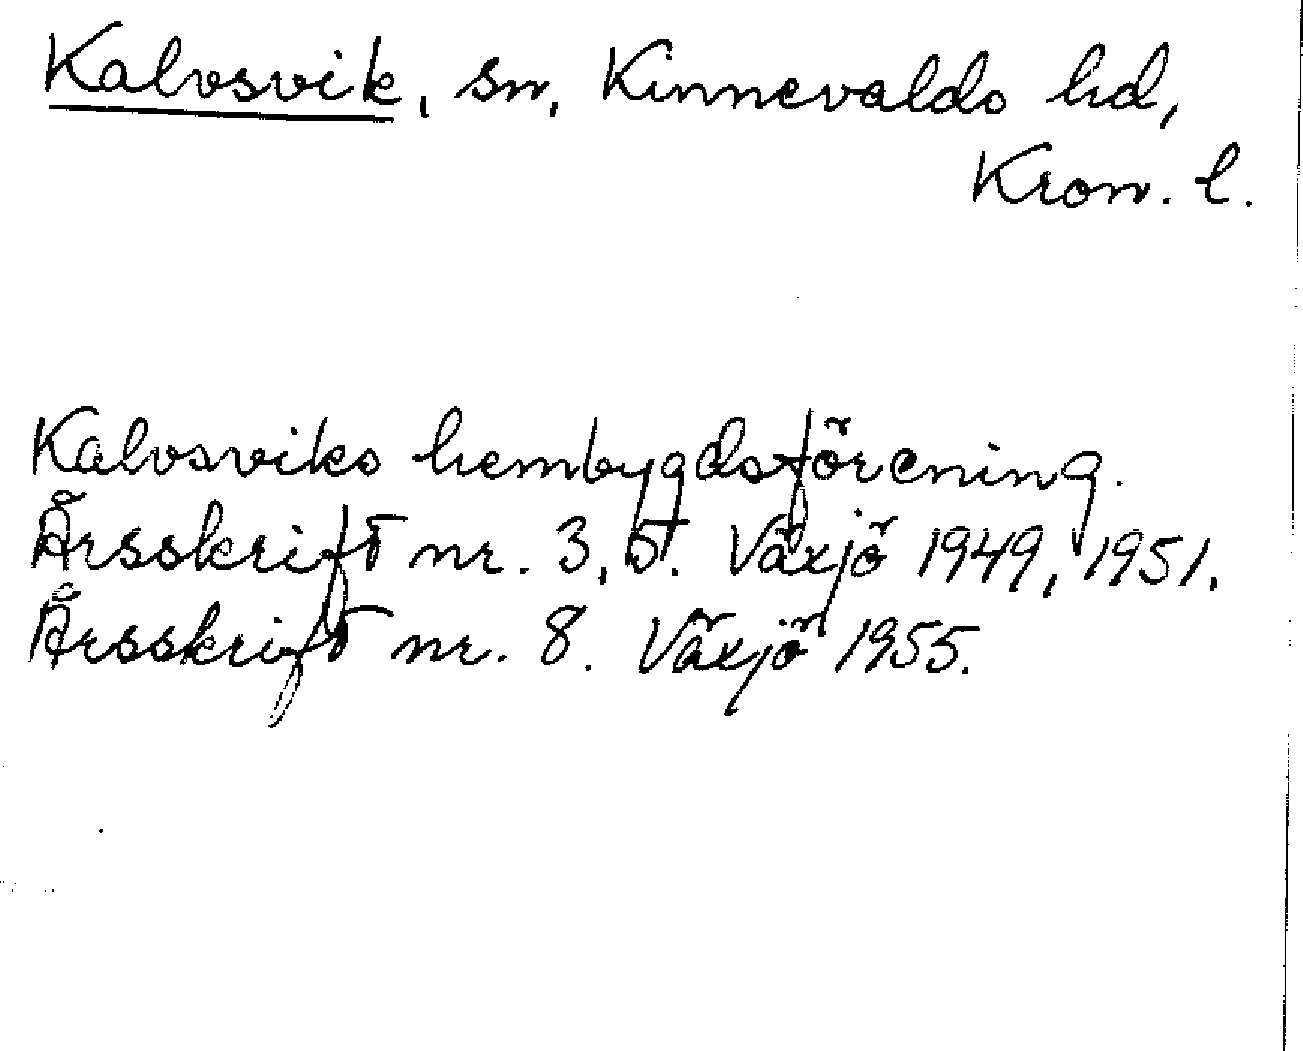 Kalvsvik, sn, Kinnevalds hd,
Kron. l.
Kalvsviks hembygdsförening.
Årsskrift nr. 3, 5. Växjö 1949, 1951.
Årsskrift nr. 8. Växjö 1955.